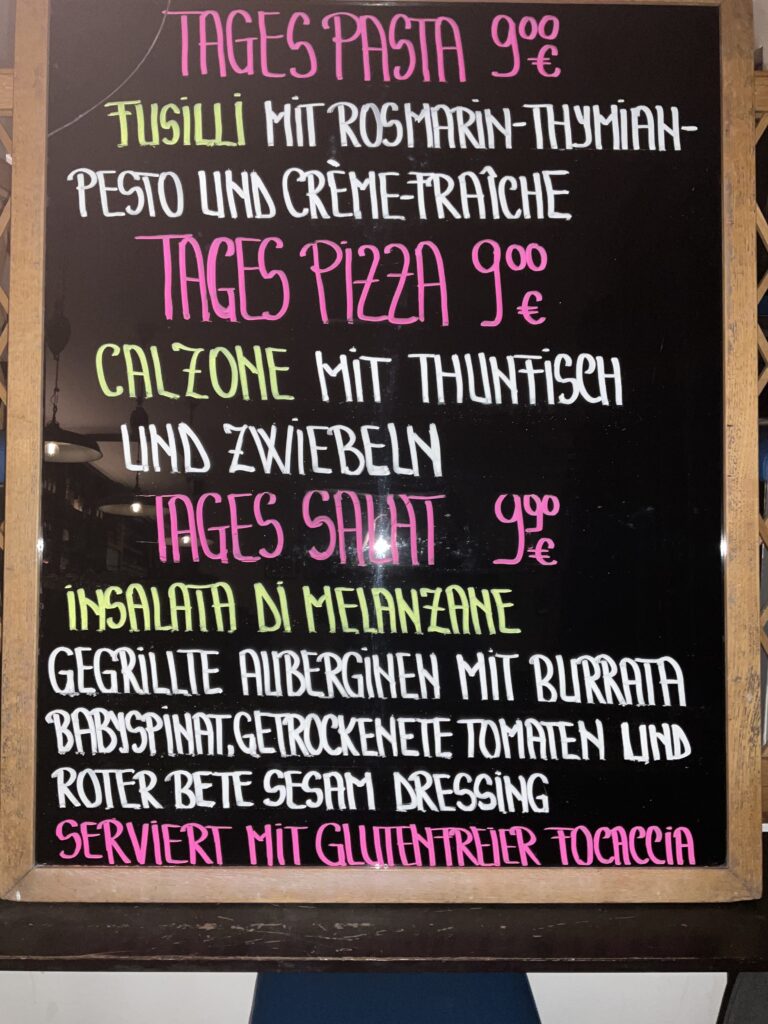 TAGES PASTA 9⁰⁰ €
FUSILLI MIT ROSMARIN-THYMIAN-
PESTO UND CRÈME-FRAÎCHE
TAGES PIZZA 9⁰⁰ €
CALZONE MIT THUNFISCH
UND ZWIEBELN
TAGES SALAT 9⁹⁰ €
INSALATA DI MELANZANE
GEGRILLTE AUBERGINEN MIT BURRATA
BABYSPINAT, GETROCKENETE TOMATEN UND
ROTER BETE SESAM DRESSING
SERVIERT MIT GLUTENFREIER FOCACCIA